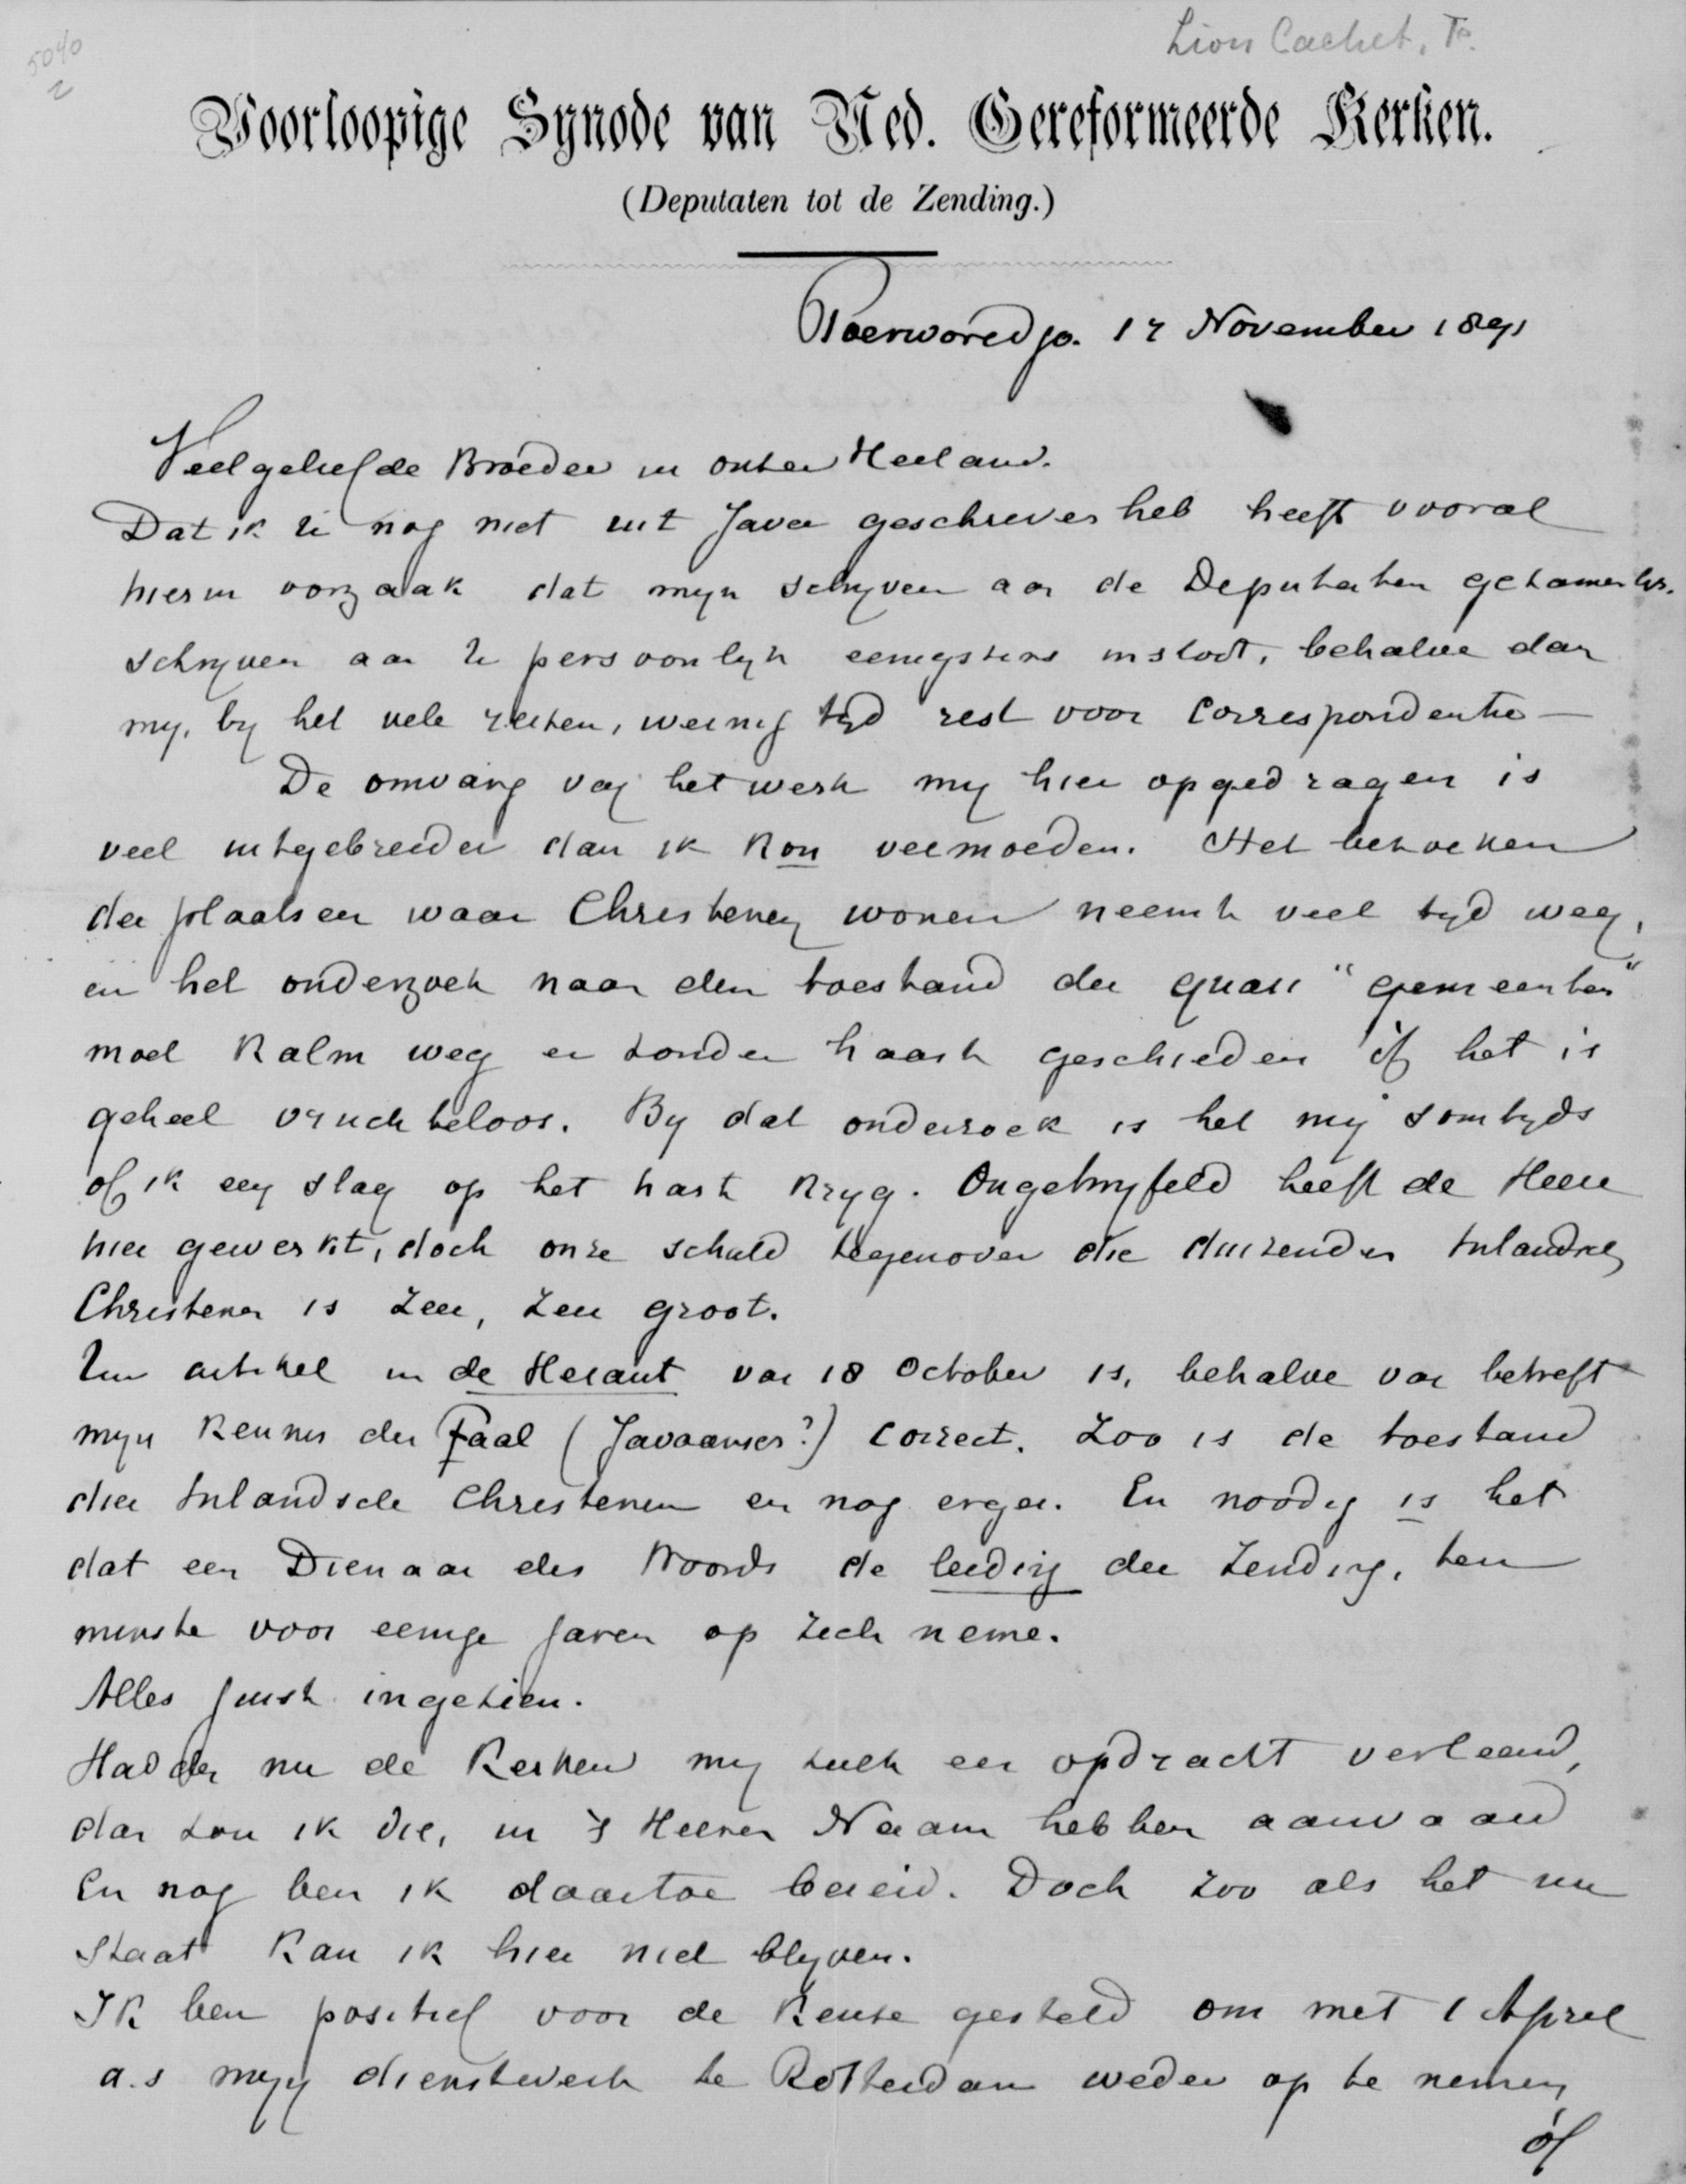 Lion Cachet, F.
5040
2
Voorloopige Synode van Ned. Gereformeerde Kerken.
(Deputaten tot de Zending.)
Poerworedjo. 17 November 1891
Veelgeliefde Broeder in onzen Heiland.
Dat ik U nog niet uit Java geschreven heb heeft vooral
hierin oorzaak dat mijn schrijven aan de Deputaten gezamenlijk
schrijven aan U persoonlijk eenigszins insloot, behalve dan
mij, bij het vele reizen, weinig tijd rest voor correspondentie —
De omvang van het werk mij hier opgedragen is
veel uitgebreider dan ik kon vermoeden. Het bezoeken
der plaatsen waar Christenen wonen neemt veel tijd weg,
en het onderzoek naar den toestand der quasi "gemeenten"
moet kalm weg en zonder haast geschieden óf het is
geheel vruchteloos. Bij dat onderzoek is het mij somtijds
of ik een slag op het hart krijg. Ongetwijfeld heeft de Heere
hier gewerkt, doch onze schuld tegenover die duizenden Inlandsche
Christenen is zeer, zeer groot.
Uw artikel in de Heraut van 18 October is, behalve van betreft
mijn kennis der Taal (Javaansch?) correct. Zoo is de toestand
der Inlandsche Christenen en nog erger. En noodig is het
dat een Dienaar des Woords de leiding der Zending, ten
minste voor eenige jaren op zich neme.
Alles juist ingezien.
Hadden nu de Kerken mij zulk een opdracht verleend,
dan zou ik die, in 's Heeren Naam hebben aanvaard
En nog ben ik daartoe bereid. Doch zoo als het nu
staat kan ik hier niet blijven.
Ik ben positief voor de keuze gesteld om met 1 April
a.s mijn dienstwerk te Rotterdam weder op te nemen
óf